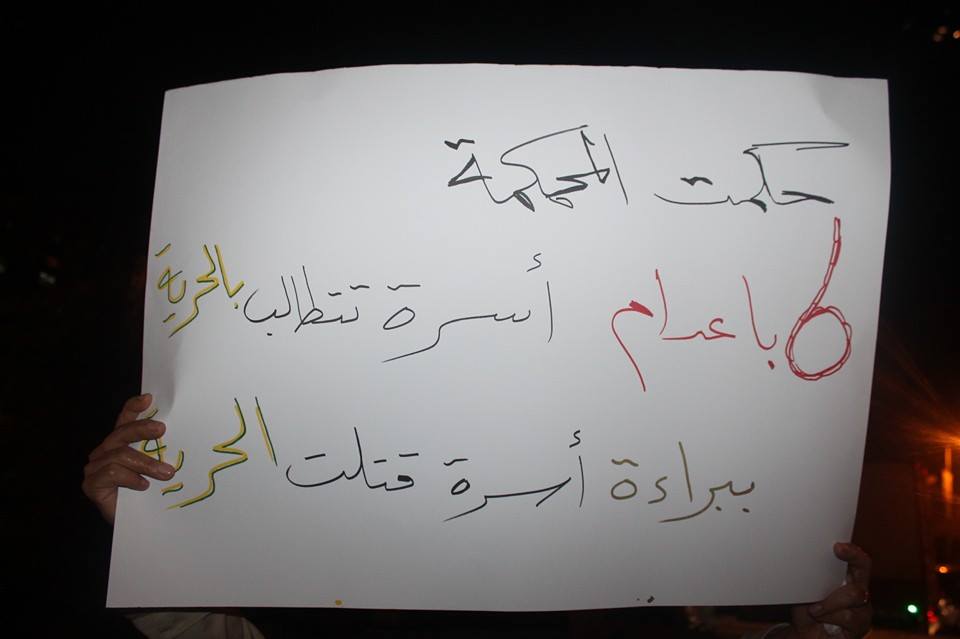 حكمت المحكمة
باعدام أسرة تتطالب بالحرية
ببراءة أسرة قتلت الحرية